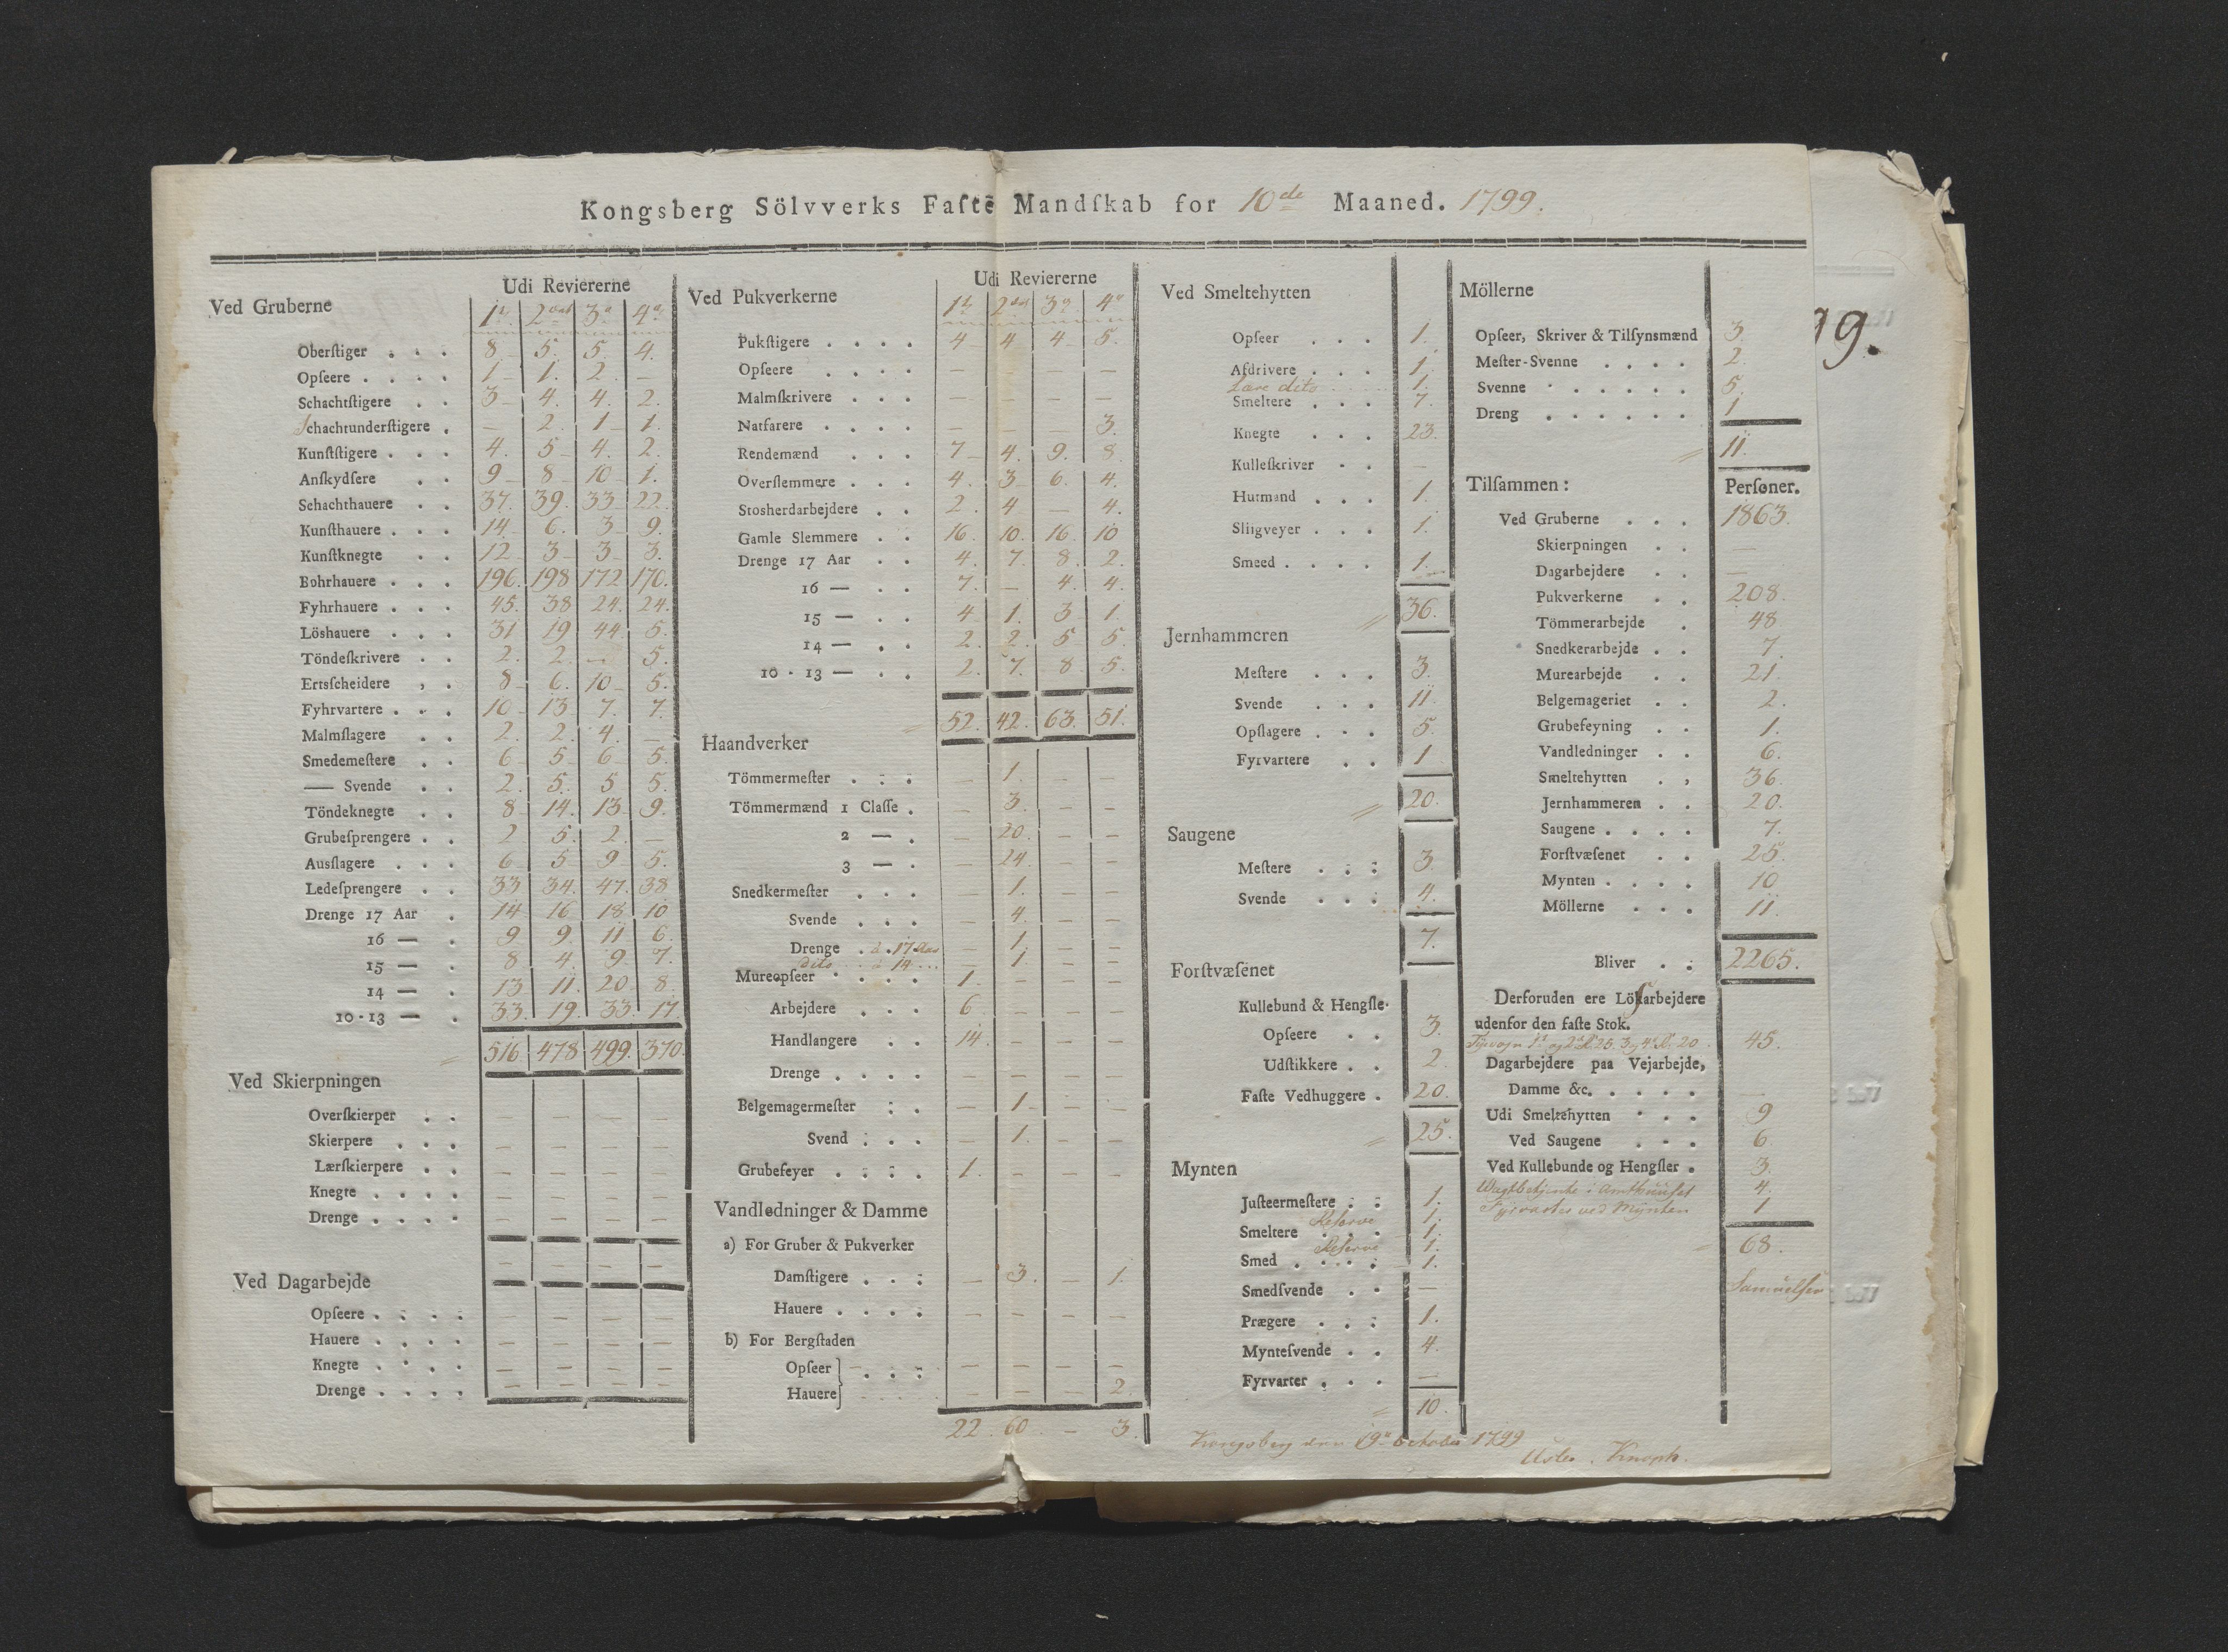 Kongsberg Sölvverks Faſte Mandſkab for 10de Maaned. 1799.
Ved Gruberne Udi Reviererne
1te 2det 3e 4e
Oberſtiger 8 5. 5. 4.
Opſeere 1 1. 2 —
Schachtſtigere 3 4. 4. 2.
Schachtunderſtigere — 2. 1 1.
Kunſtſtigere 4. 5 4. 2.
Anſkydſere 9 8 10 1.
Schachthauere 37. 39. 33 22.
Kunſthauere 14. 6. 3 9.
Kunſtknegte 12 3 3 3.
Bohrhauere 196. 198 172 170.
Fyhrhauere 45. 38 24. 24.
Löshauere 31 19 44. 5.
Töndeſkrivere 2. 2. — 5.
Ertsſcheidere 8 6. 10 5.
Fyhrvartere 10 13 7. 7.
Malmſlagere 2. 2. 4. —
Smedemeſtere 6 5 6 5.
— Svende 2. 5. 5 5.
Töndeknegte 8 14. 13 9.
Grubeſprengere 2 5. 2. —
Ausſlagere 6 5 9 5.
Ledeſprengere 33 34. 47. 38
Drenge 17 Aar 14 16 18 10
16 — 9 9. 11 6.
15 — 8 4. 9 7.
14 — 13 11. 20 8.
10-13 — 33. 19. 33. 17.
516 478 499. 370.
Ved Skierpningen
Overſkierper — — — —
Skierpere — — — —
Lærſkierpere — — — —
Knegte — — — —
Drenge — — — —
— — — —
Ved Dagarbejde
Opſeere — — — —
Hauere — — — —
Knegte — — — —
Drenge — — — —
Ved Pukverkerne Udi Reviererne
1te 2det 3e 4e
Pukſtigere 4 4 4 5.
Opſeere — — — —
Malmſkrivere — — — —
Natfarere — — — 3.
Rendemænd 7 4. 9. 8.
Overſlemmere 4. 3 6. 4.
Stosherdarbejdere 2. 4 — 4.
Gamle Slemmere 16. 10. 16. 10
Drenge 17 Aar 4. 7. 8. 2.
16 — 7. — 4. 4.
15 — 4 1. 3 1.
14 — 2. 2. 5 5.
10-13 — 2. 7. 8 5.
52. 42. 63. 51.
Haandverker
Tömmermeſter — 1. — —
Tömmermænd 1 Claſſe — 3. — —
2 — — 20. — —
3 — — 24. — —
Snedkermeſter — 1. — —
Svende — 4. — —
Drenge à 17 Aar — 1. — —
dito à 14 — 1. — —
Mureopſeer 1. — — —
Arbejdere 6. — — —
Handlangere 14. — — —
Drenge — — — —
Belgemagermeſter — 1. — —
Svend — 1. — —
Grubefeyer 1. — — —
Vandledninger & Damme
a) For Gruber & Pukverker
Damſtigere — 3. — 1.
Hauere — — — —
b) For Bergſtaden
Opſeer — — — —
Hauere — — — 2.
22. 60. — 3.
Ved Smeltehytten
Opſeer 1.
Afdrivere 1.
Lære dito 1.
Smeltere 7.
Knegte 23.
Kulleſkriver —
Hutmand 1.
Sliigveyer 1.
Smeed 1.
36.
Jernhammeren
Meſtere 3.
Svende 11.
Opſlagere 5.
Fyrvartere 1
20.
Saugene
Meſtere 3
Svende 4.
7.
Forſtvæſenet
Kullebund & Hengſle-
Opſeere 3.
Udſtikkere 2.
Faſte Vedhuggere 20.
25.
Mynten
Juſteermeſtere 1.
Reserve 1.
Smeltere 1.
Reserve 1.
Smed 1.
Smedſvende —
Prægere 1.
Mynteſvende 4.
Fyrvarter —
10.
Möllerne
Opſeer, Skriver & Tilſynsmænd 3.
Meſter-Svenne 2.
Svenne 5.
Dreng 1
11.
Tilſammen: Perſoner.
Ved Gruberne 1863.
Skierpningen —
Dagarbejdere —
Pukverkerne 208.
Tömmerarbejde 48
Snedkerarbejde 7.
Murearbejde 21.
Belgemageriet 2.
Grubefeyning 1.
Vandledninger 6.
Smeltehytten 36.
Jernhammeren 20.
Saugene 7.
Forſtvæſenet 25.
Mynten 10
Möllerne 11.
Bliver 2265.
Derforuden ere Löſarbejdere
udenfor den faſte Stok.
1t og 2d R. 25. 3 og 4e R. 20. 45.
Dagarbejdere paa Vejarbejde,
Damme &c. —
Udi Smeltehytten 9
Ved Saugene 6.
Ved Kullebunde og Hengſler 3.
Vagtbetjente i Amthuuset 4.
Fyrvarter ved Mynten 1
68.
Samuelsen
Kongsberg den 19e October 1799
Knoph.
99.